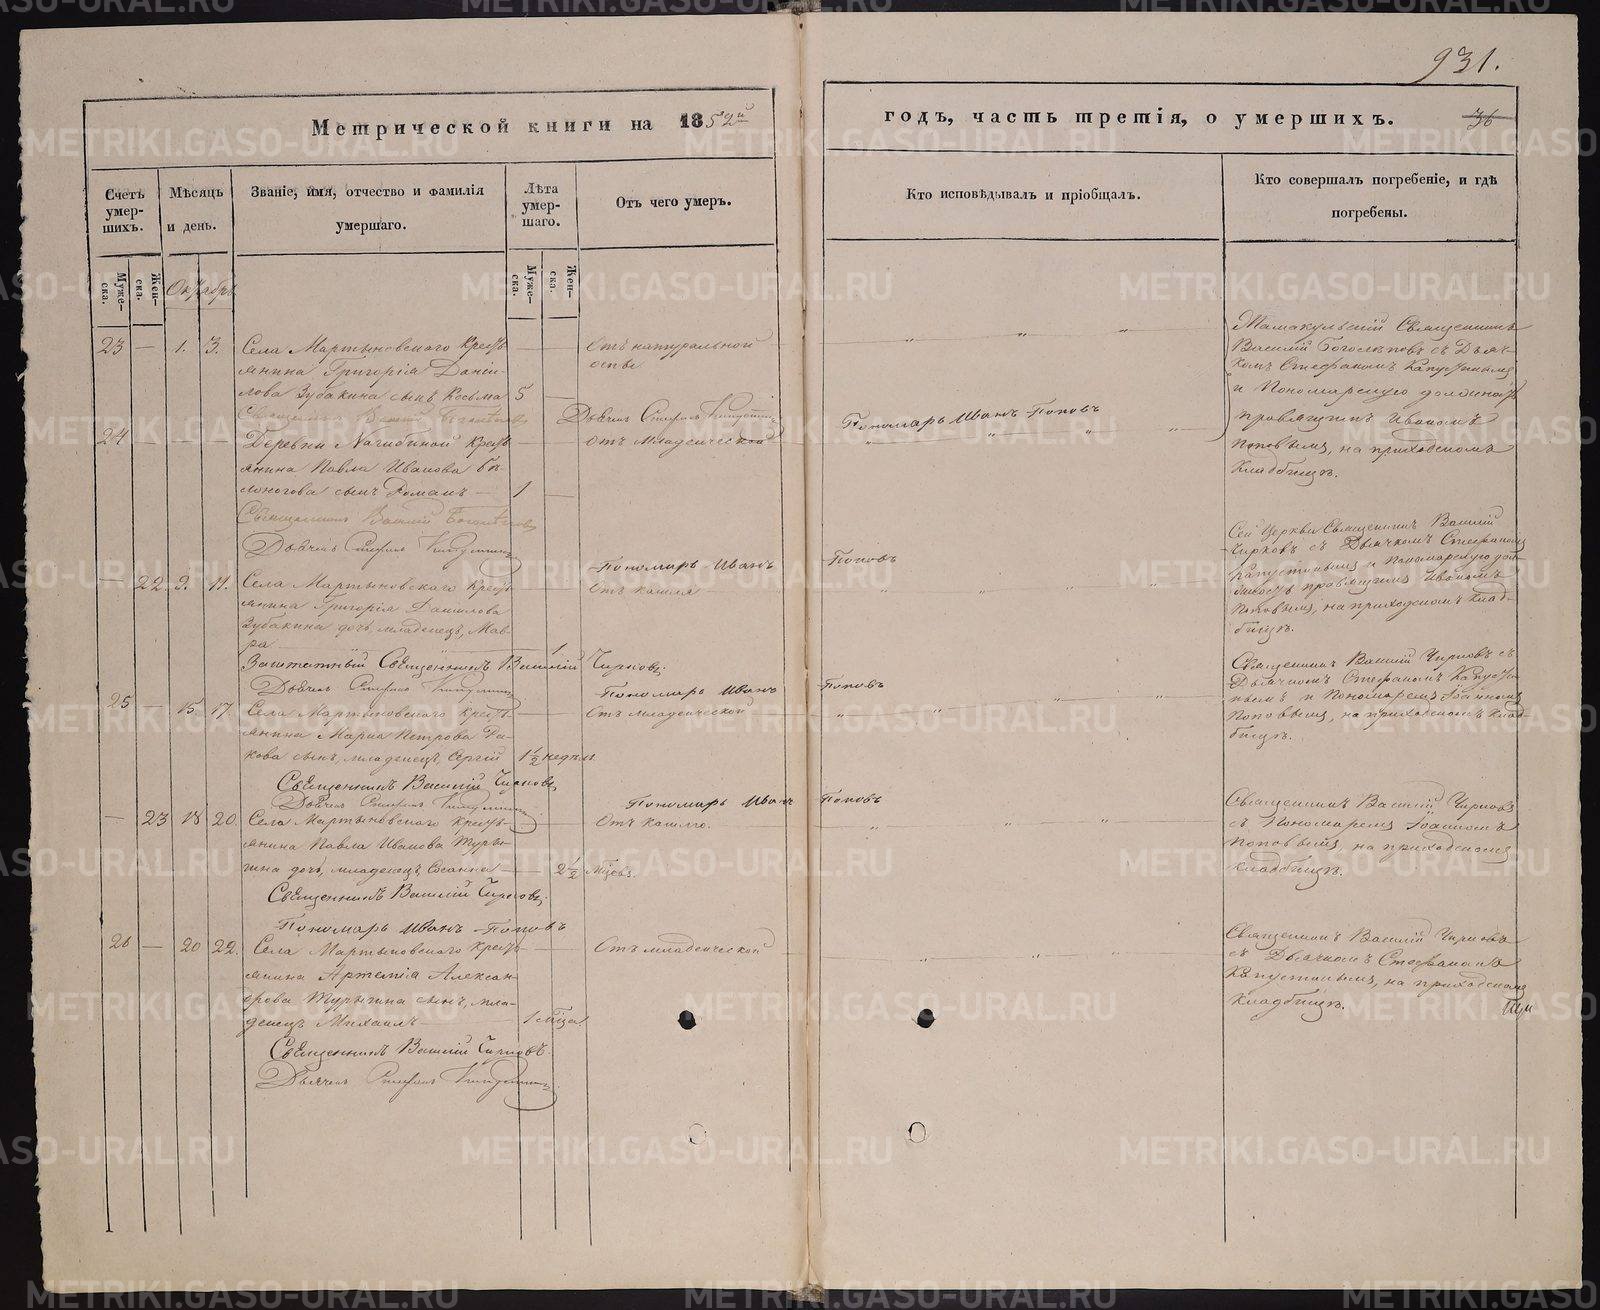 931.
Метрической книги на 1852й
годъ, часть третія, о умершихъ.
36
Счетъ умер-шихъ.
Мѣсяцъ и день.
Званіе, имя, отчество и фамилія умершаго.
Лѣта умер-шаго.
Отъ чего умеръ.
Кто исповѣдывалъ и пріобщалъ.
Кто совершалъ погребеніе, и гдѣ погребены.
Муже-ска.
Жен-ска.
Октябрь
Муже-ска.
Жен-ска.
23 — 1. 3. Села Мартыновскаго крестъ-
янина Григорія Даніи-
лова Зубакина сынъ Косьма 5
Отъ натуральной
оспы
Мамакульскій Священникъ
Василій Богослѣповъ съ Дьяч-
комъ Стефаномъ Капустинымъ
и Пономарскую должность
правящимъ Иваномъ
Поповымъ, на приходскомъ
кладбищѣ.
Священникъ Василій Богослѣповъ
Дьячекъ Стефанъ Капустинъ
Пономарь Иванъ Поповъ
24 — Деревни Нагибиной крестъ-
янина Павла Иванова Бѣ-
лоногова сынъ Романъ — 1
Отъ младенческой
Священникъ Василій Богослѣповъ
Дьячекъ Стефанъ Капустинъ
Пономарь Иванъ Поповъ
— 22 9. 11. Села Мартыновскаго крестъ-
янина Григорія Данилова
Зубакина дочь, младенецъ, Мав-
ра 1
Отъ кашля
Сей Церкви Священникъ Василій
Чирковъ съ Дьячкомъ Стефаномъ
Капустинымъ и Пономарскую дол-
жность правящимъ Иваномъ
Поповымъ, на приходскомъ клад-
бищѣ.
Заштатный Священникъ Василій Чирковъ.
Дьячекъ Стефанъ Капустинъ
Пономарь Иванъ Поповъ
25 — 15. 17. Села Мартыновскаго крестъ-
янина Марка Петрова
кова сынъ, младенецъ, Сергій 1½ недѣли
Отъ младенческой
Священникъ Василій Чирковъ съ
Дьячкомъ Стефаномъ Капусти-
нымъ и Пономаремъ Іоанномъ
Поповымъ, на приходскомъ клад-
бищѣ.
Священникъ Василій Чирковъ
Дьячекъ Стефанъ Капустинъ
Пономарь Иванъ Поповъ
— 23 18 20. Села Мартыновскаго крестъ-
янина Павла Иванова Туры-
гина дочь, младенецъ, 2½ Мѣсяц.
Отъ кашлю.
Священникъ Василій Чирковъ
съ Пономаремъ Іоанномъ
Поповымъ, на приходскомъ
кладбищѣ.
Священникъ Василій Чирковъ.
Пономарь Иванъ Поповъ
26 — 20 22. Села Мартыновскаго крестъ-
янина Артемія Алексан-
дрова Турыгина сынъ, мла-
денецъ Михаилъ 1 мѣсяца
Отъ младенческой
Священникъ Василій Чирковъ
съ Дьячкомъ Стефаномъ
Капустинымъ, на приходскомъ
кладбищѣ.
Священникъ Василій Чирковъ.
Дьячекъ Стефанъ Капустинъ
METRIKI.GASO-URAL.RU